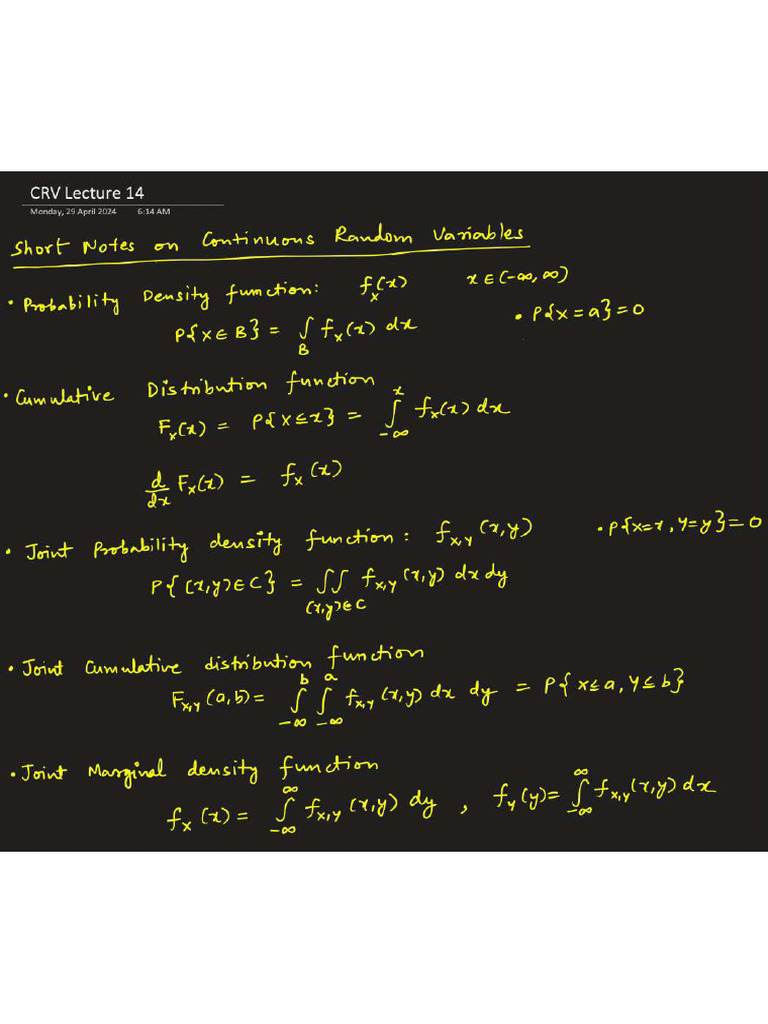 CRV Lecture 14
Monday, 29 April 2024 6:14 AM
Short Notes on Continuous Random Variables
• Probability Density function: f_X(x) x ∈ (-∞, ∞)
• P{X = a} = 0
P{X ∈ B} = ∫_B f_X(x) dx
• Cumulative Distribution function
F_X(x) = P{X ≤ x} = ∫_{-∞}^{x} f_X(x) dx
d/dx F_X(x) = f_X(x)
• Joint Probability density function: f_{X,Y}(x,y) • P{X=x, Y=y} = 0
P{(x,y) ∈ C} = ∬_{(x,y)∈C} f_{X,Y}(x,y) dx dy
• Joint Cumulative distribution function
F_{X,Y}(a,b) = ∫_{-∞}^{b} ∫_{-∞}^{a} f_{X,Y}(x,y) dx dy = P{X ≤ a, Y ≤ b}
• Joint Marginal density function
f_X(x) = ∫_{-∞}^{∞} f_{X,Y}(x,y) dy , f_Y(y) = ∫_{-∞}^{∞} f_{X,Y}(x,y) dx